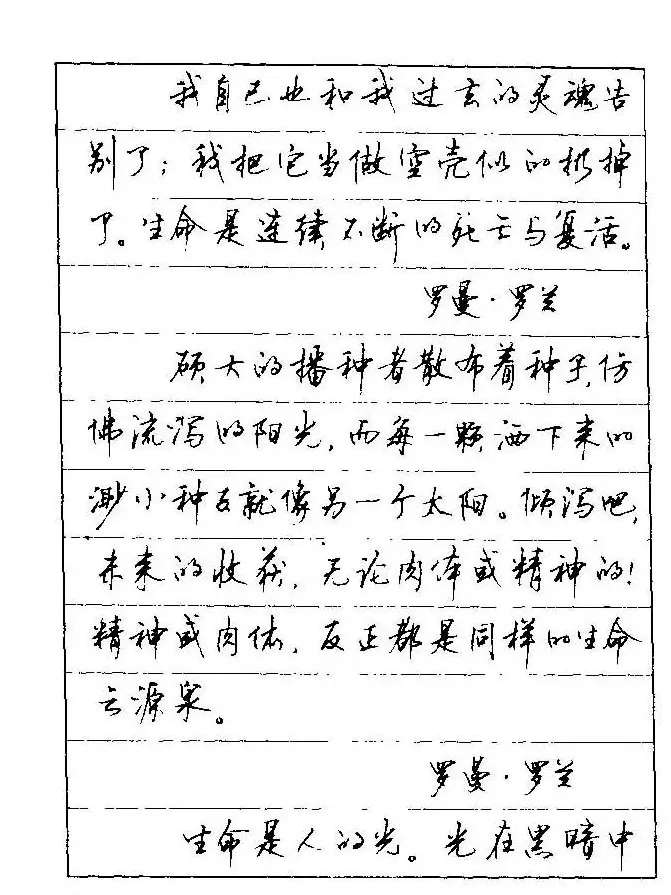 我自己也和我过去的灵魂告
别了；我把它当做空壳似的扔掉
了。生命是连续不断的死亡与复活。
罗曼·罗兰
硕大的播种者散布着种子，仿
佛流泻的阳光，而每一颗洒下来的
渺小种子就像另一个太阳。倾泻吧，
未来的收获，无论肉体或精神的！
精神或肉体，反正都是同样的生命
之源泉。
罗曼·罗兰
生命是人的光。光在黑暗中